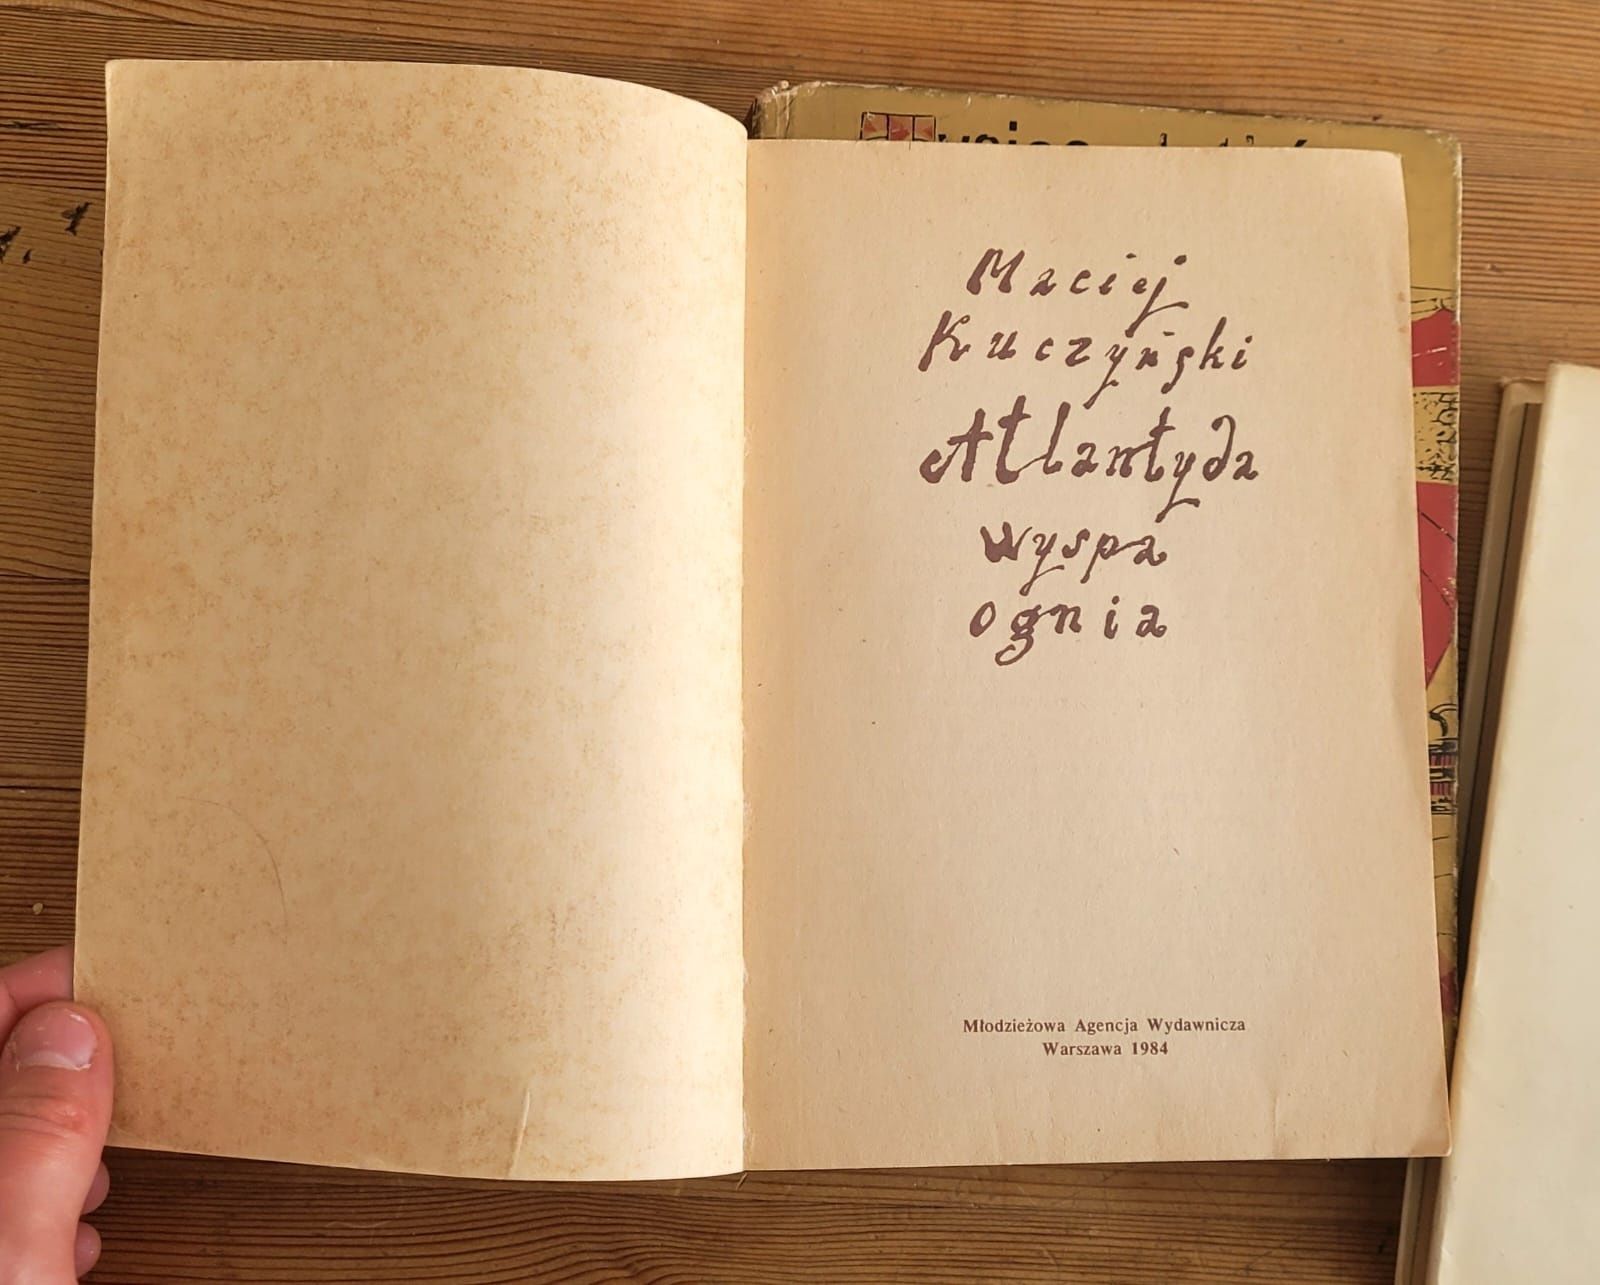 Maciej
Kuczyński
Atlantyda
wyspa
ognia
Młodzieżowa Agencja Wydawnicza
Warszawa 1984